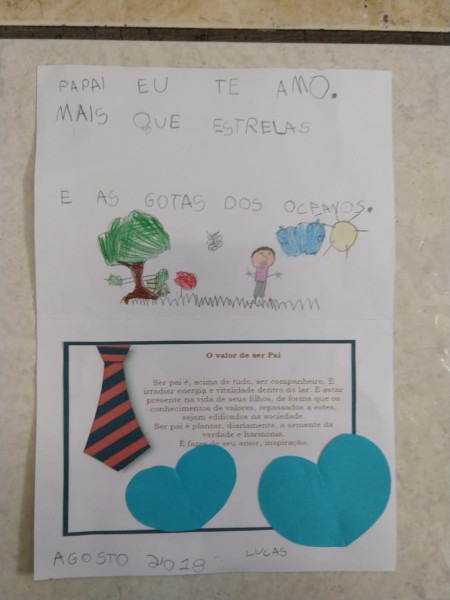 PAPAI EU TE AMO.
MAIS QUE ESTRELAS
E AS GOTAS DOS OCPANOS.
O valor de ser Pai
Ser pai é, acima de tudo, ser companheiro. É
irradiar energia e vitalidade dentro do lar. É estar
presente na vida de seus filhos, de forma que os
conhecimentos de valores, repassados a estes,
sejam edificados na sociedade.
Ser pai é plantar, diariamente, a semente da
verdade e harmonia.
É fazer de seu amor, inspiração.
AGOSTO 2018
LUCAS